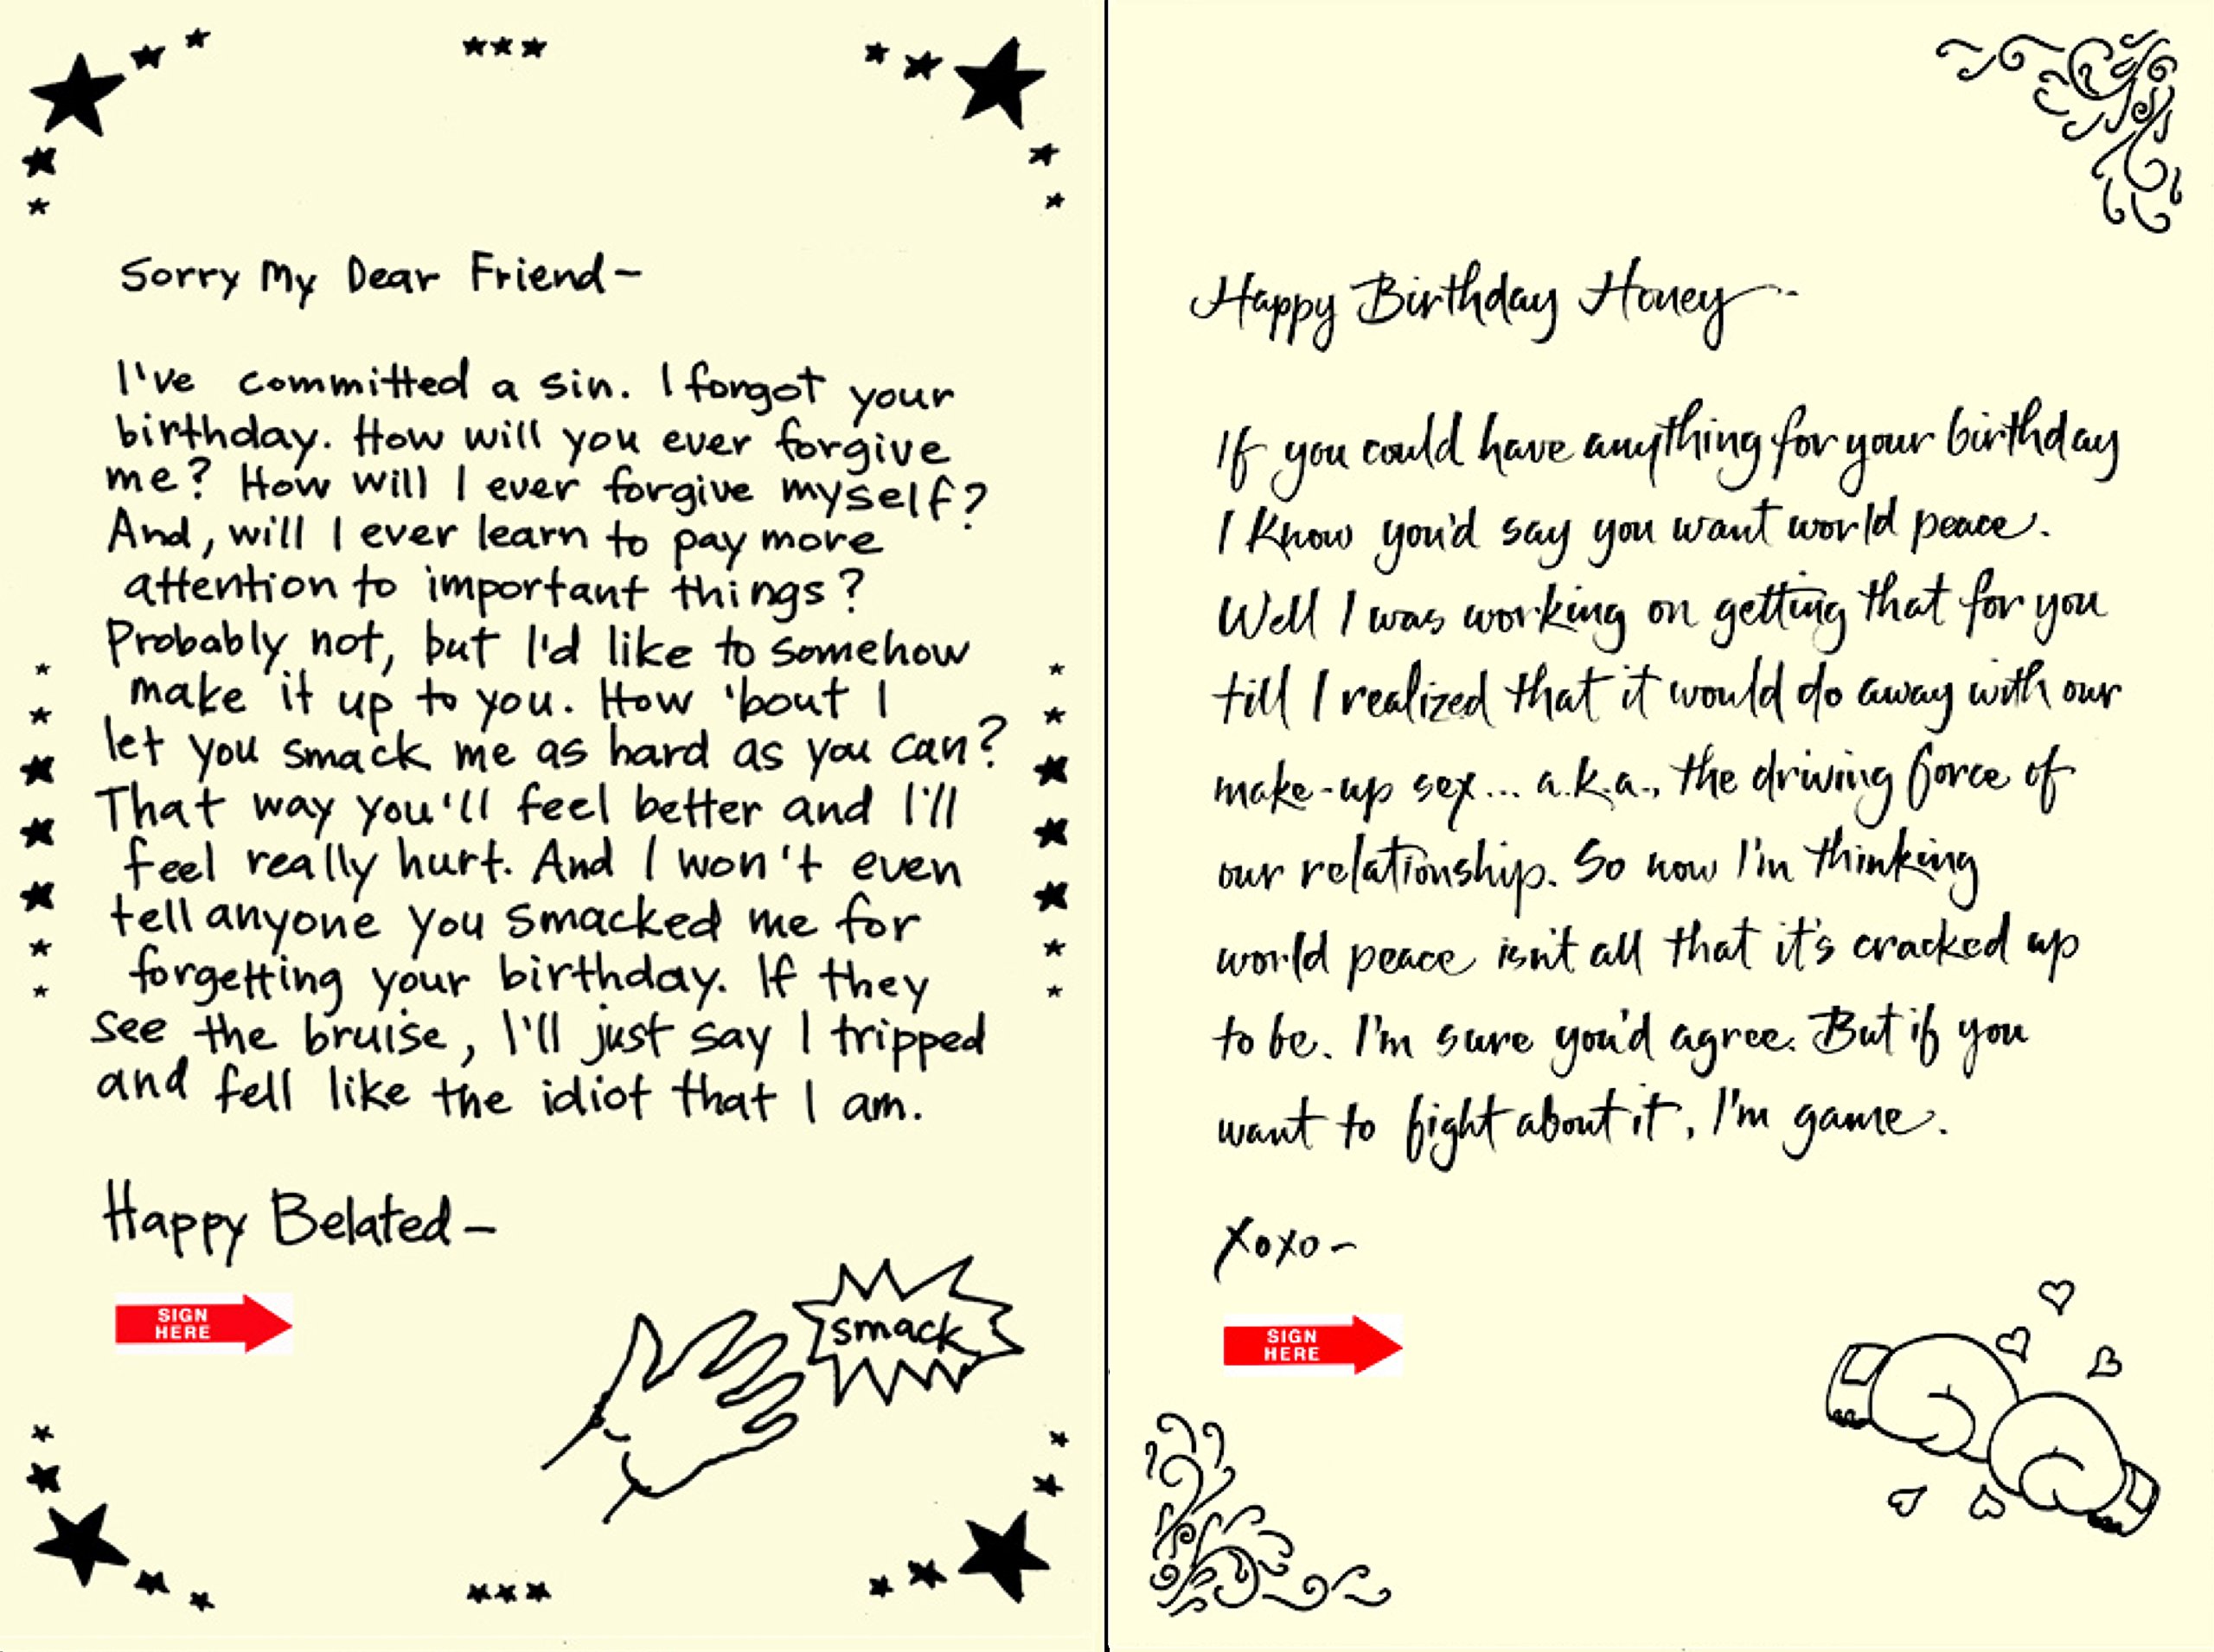 Sorry My Dear Friend-
I've committed a sin. I forgot your
birthday. How will you ever forgive
me? How will I ever forgive myself?
And, will I ever learn to pay more
attention to important things?
Probably not, but I'd like to somehow
make it up to you. How 'bout I
let you smack me as hard as you can?
That way you'll feel better and I'll
feel really hurt. And I won't even
tell anyone you smacked me for
forgetting your birthday. If they
see the bruise, I'll just say I tripped
and fell like the idiot that I am.
Happy Belated-
SIGN
HERE
smack
Happy Birthday Honey--
If you could have anything for your birthday
I know you'd say you want world peace.
Well I was working on getting that for you
till I realized that it would do away with our
make-up sex... a.k.a., the driving force of
our relationship. So now I'm thinking
world peace isn't all that it's cracked up
to be. I'm sure you'd agree. But if you
want to fight about it, I'm game.
XoXo-
SIGN
HERE